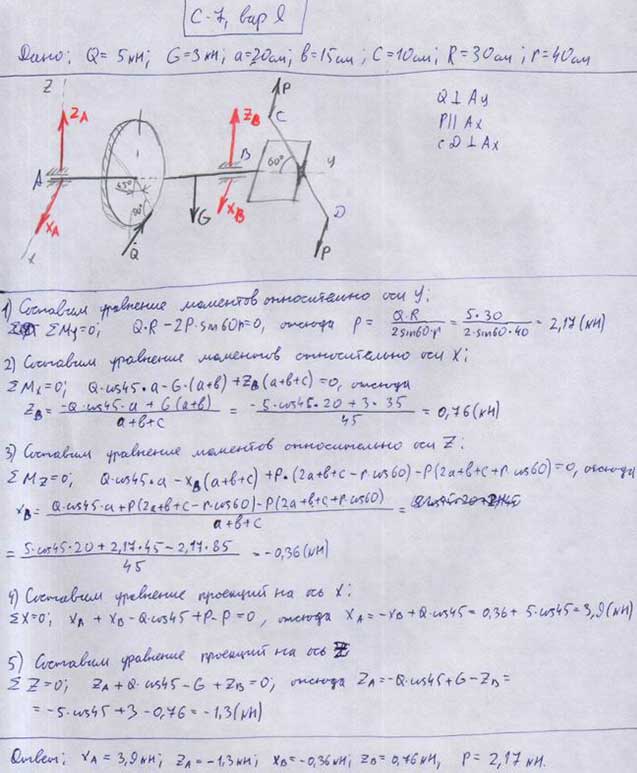 С-7, вар 1
Дано: Q = 5кН; G = 3кН; a = 20см; b = 15см; C = 10см; R = 30см; r = 40см
Z
ZA
A
XA
x
45°
90°
Q
G
ZB
B
XB
P
C
60°
y
D
P
Q ⊥ Ay
P || Ax
CD ⊥ Ax
1) Составим уравнение моментов относительно оси y:
ΣMy=0; Q·R - 2P·sin60r=0, откуда P = Q·R / 2sin60·r = 5·30 / 2·sin60·40 = 2,17(кН)
2) Составим уравнение моментов относительно оси X:
ΣMx=0; Q·cos45·a - G·(a+b) + ZB(a+b+c) = 0, откуда
ZB = -Q·cos45·a + G(a+b) / a+b+c = -5·cos45·20 + 3·35 / 45 = 0,76(кН)
3) Составим уравнение моментов относительно оси Z:
ΣMz=0; Q·cos45·a - XB(a+b+c) + P·(2a+b+c - r·cos60) - P(2a+b+c+r·cos60) = 0, откуда
XB = Q·cos45·a + P(2a+b+c - r·cos60) - P(2a+b+c+r·cos60) / a+b+c =
= 5·cos45·20 + 2,17·45 - 2,17·85 / 45 = -0,36(кН)
4) Составим уравнение проекций на ось X:
ΣX=0; XA + XB - Q·cos45 + P - P = 0, откуда XA = -XB + Q·cos45 = 0,36 + 5·cos45 = 3,9(кН)
5) Составим уравнение проекций на ось Z
ΣZ=0; ZA + Q·cos45 - G + ZB = 0; откуда ZA = -Q·cos45 + G - ZB =
= -5·cos45 + 3 - 0,76 = -1,3(кН)
Ответ: XA = 3,9кН; ZA = -1,3кН; XB = -0,36кН; ZB = 0,76кН, P = 2,17кН.